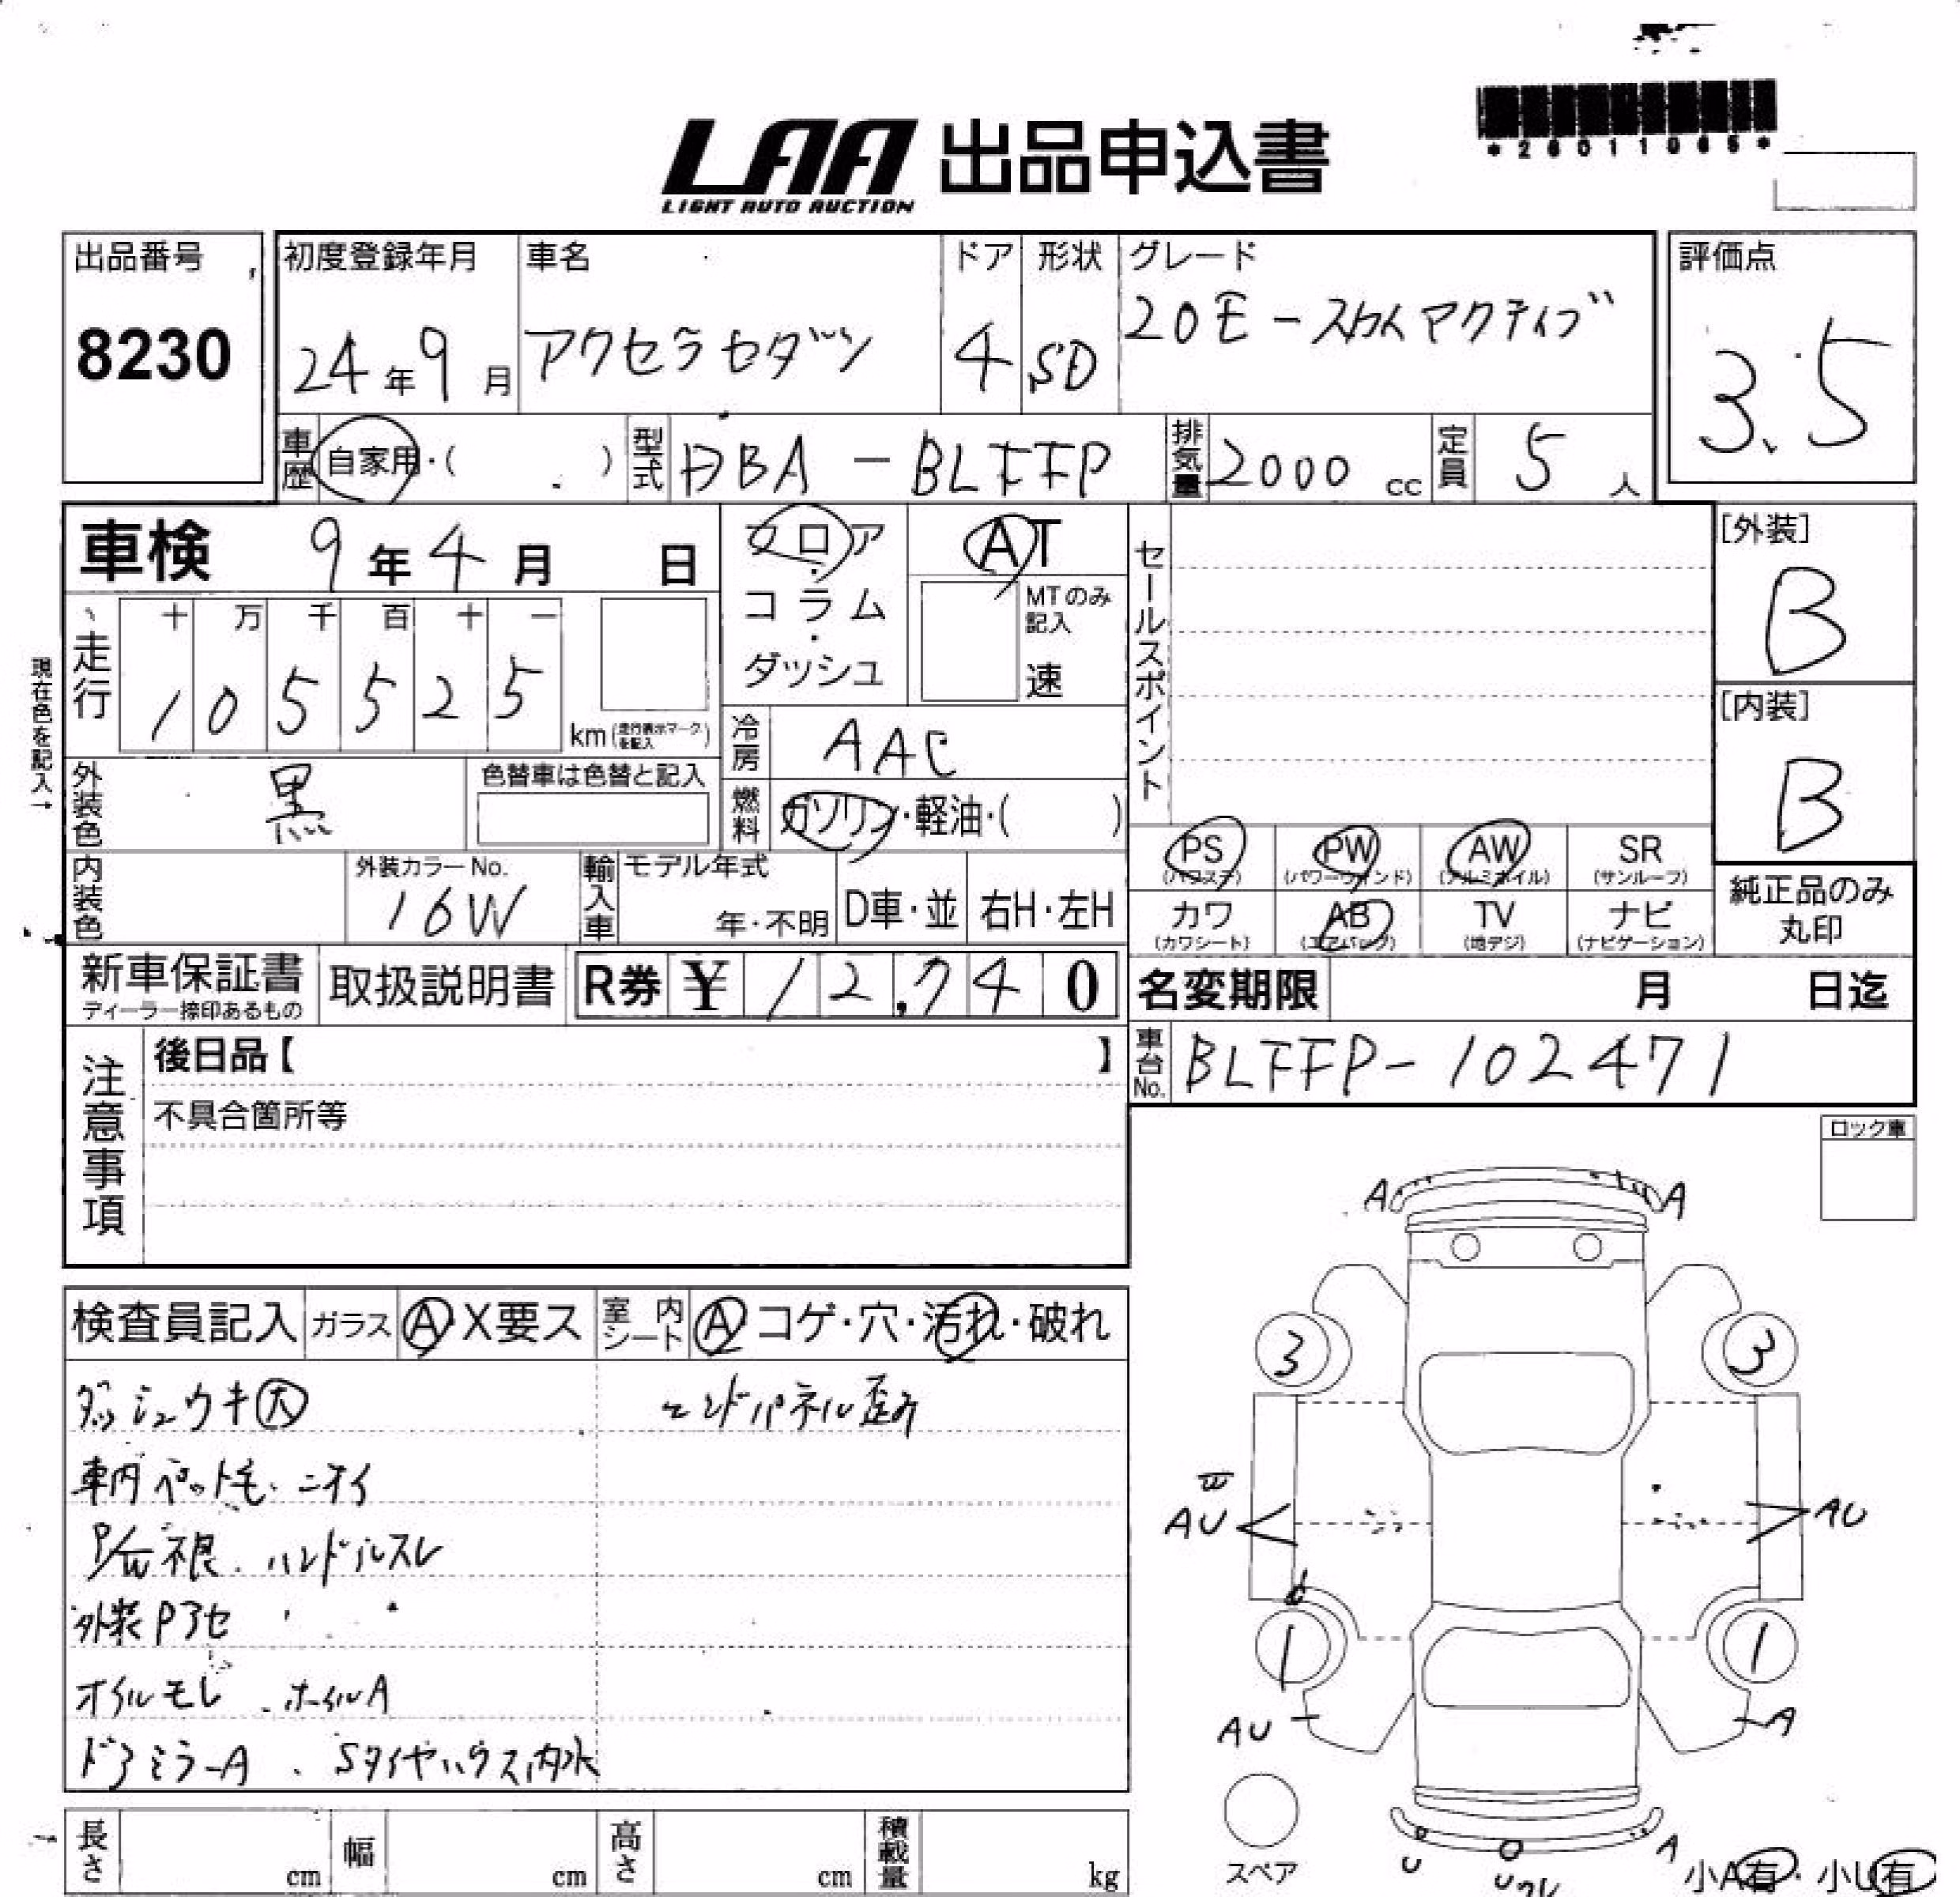 LAA 出品申込書
LIGHT AUTO AUCTION
*26011065*
出品番号
8230
初度登録年月
24年9月
車名
アクセラセダン
ドア
4
形状
SD
グレード
20E-スカイアクティブ
評価点
3.5
車歴 自家用・( )
型式 DBA-BLFFP
排気量 2000 cc
定員 5人
車検 9年4月 日
フロア・コラム・ダッシュ
AT
MTのみ記入
速
セールスポイント
[外装]
B
現在色を記入→
走行
十 万 千 百 十 一
1 0 5 5 2 5
km(走行表示マークを記入)
冷房 AAC
[内装]
B
外装色 黒
色替車は色替と記入
燃料 ガソリン・軽油・( )
PS (パワステ)
PW (パワーウィンド)
AW (アルミホイル)
SR (サンルーフ)
カワ (カワシート)
AB (エアバッグ)
TV (地デジ)
ナビ (ナビゲーション)
純正品のみ
丸印
内装色
外装カラーNo.
16W
輸入車
モデル年式
年・不明
D車・並
右H・左H
新車保証書
ディーラー捺印あるもの
取扱説明書
R券 ¥ 12,740
名変期限 月 日迄
車台No. BLFFP-102471
注意事項
後日品【 】
不具合箇所等
ロック車
検査員記入
ガラス A・X要ス
室内シート A コゲ・穴・汚れ・破れ
ダッシュウキ大
エンドパネル歪み
車内ペット毛・ニオイ
P/W不良.ハンドルスレ
外装Pヌセ
オイルモレ.ホイルA
ドアミラーA、Sタイヤハウス内水
A A
3 3
AU AU
1 1
AU A
スペア
U A
小A有・小U有
長さ cm
幅 cm
高さ cm
積載量 kg